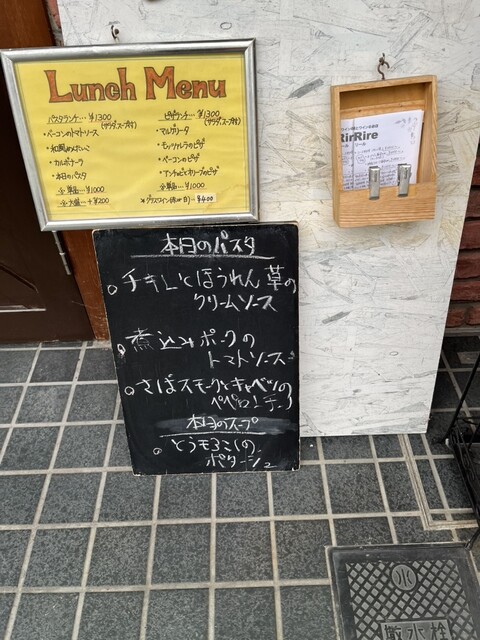 Lunch Menu
パスタランチ… ¥1300
(サラダ、スープ付)
・ベーコンのトマトソース
・和風めんたいこ
・カルボナーラ
・本日のパスタ
☆単品… ¥1000
☆大盛… +¥200
ピザランチ… ¥1300
(サラダ、スープ付)
・マルガリータ
・モッツァレラのピザ
・ベーコンのピザ
・アンチョビとオリーブのピザ
☆単品… ¥1000
*グラスワイン(赤 or 白)… ¥400
RirRire
本日のパスタ
チキンとほうれん草の
クリームソース
煮込みポークの
トマトソース
さばスモークとキャベツの
ペペロンチーノ
本日のスープ
とうもろこしの
ポタージュ
散水栓